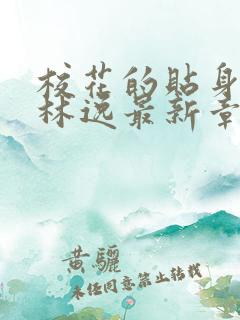 校花的贴身
林逸最新章
黄骊
未经同意禁止转载